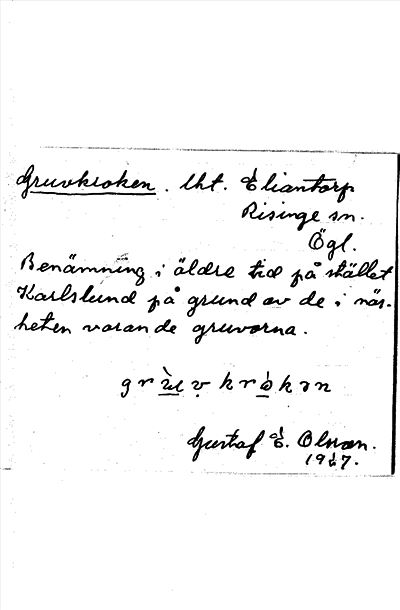 Gruvkroken. lht. Eliantorp
Risinge sn.
Ögl.
Benämning i äldre tid på stället
Karlslund på grund av de i när-
heten varande gruvorna.
Gustaf E. Olsson.